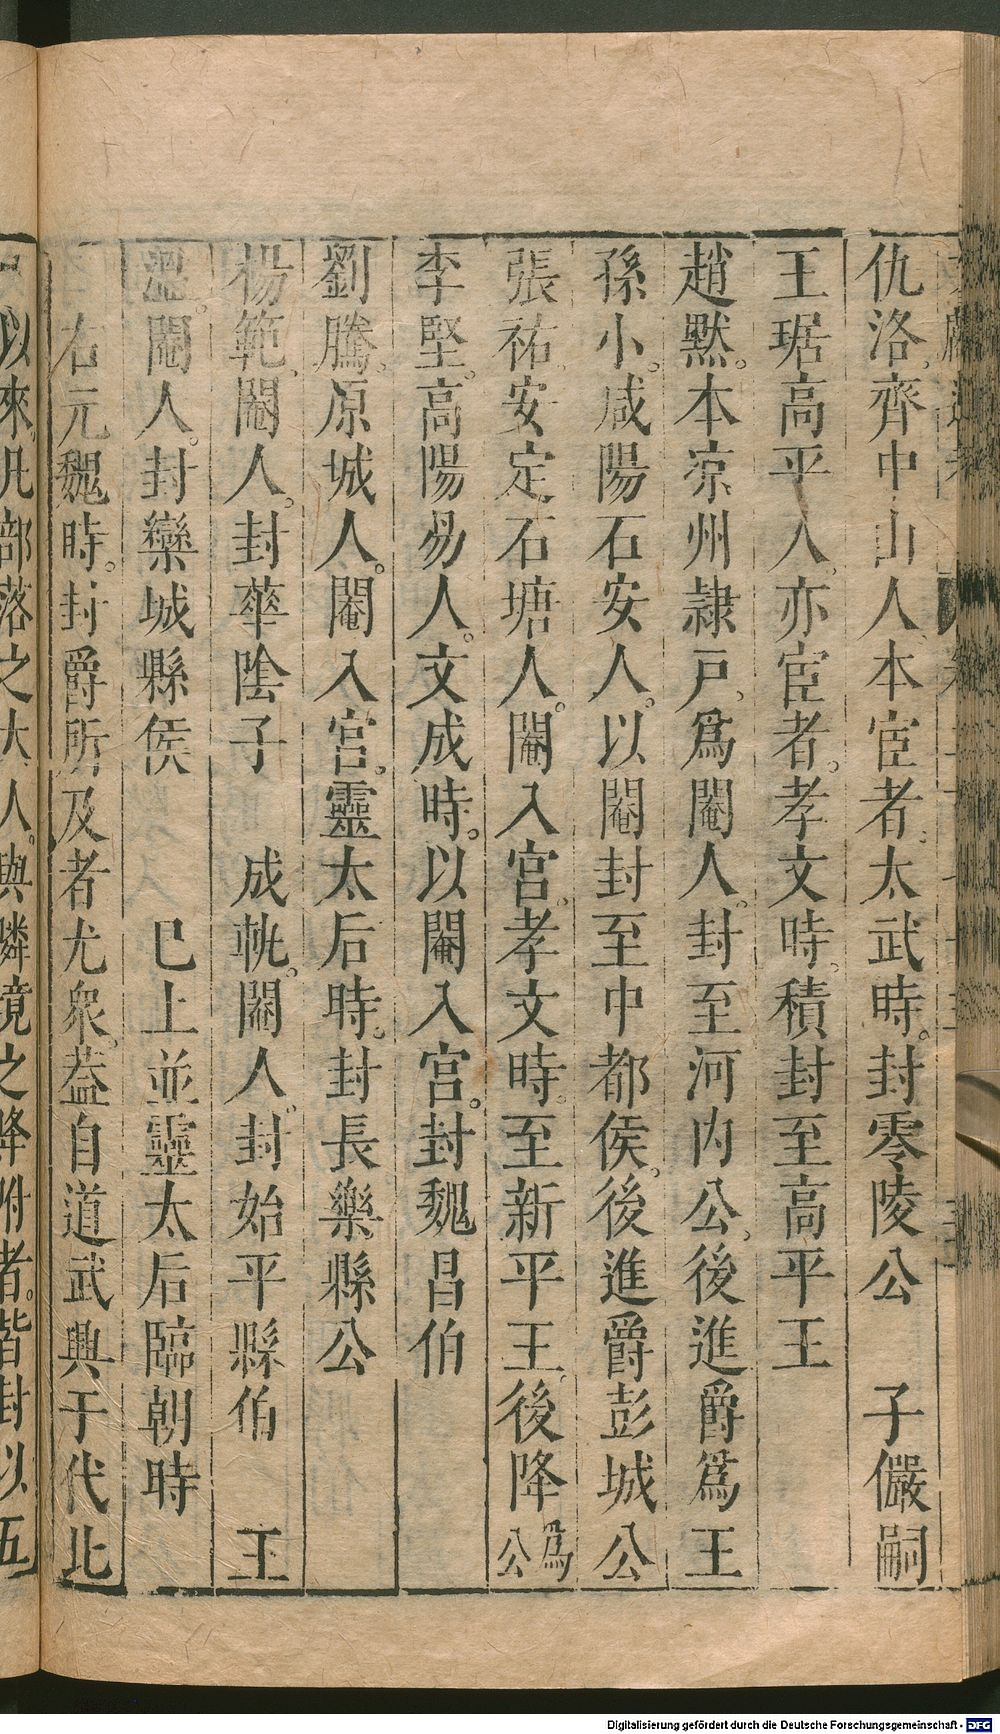 仇洛。齊中山人。本宦者。太武時。封零陵公　子儼嗣
王琚高平人。亦宦者。孝文時。積封至高平王
趙黙。本涼州隷戸。爲閹人。封至河内公。後進爵爲王
孫小。咸陽石安人。以閹封至中都侯。後進爵彭城公
張祐。安定石塘人。閹入宮。孝文時。至新平王。後降爲公
李堅。高陽易人。文成時。以閹入宮。封魏昌伯
劉騰。原城人。閹入宮。靈太后時。封長樂縣公
楊範。閹人。封華陰子　成軌。閹人。封始平縣伯　王
溫。閹人。封欒城縣侯　　巳上並靈太后臨朝時
右元魏時。封爵所及者尤衆。葢自道武興于代北
以來。凡部落之大人。與隣境之降附者。皆封以五
Digitalisierung gefördert durch die Deutsche Forschungsgemeinschaft - DFG